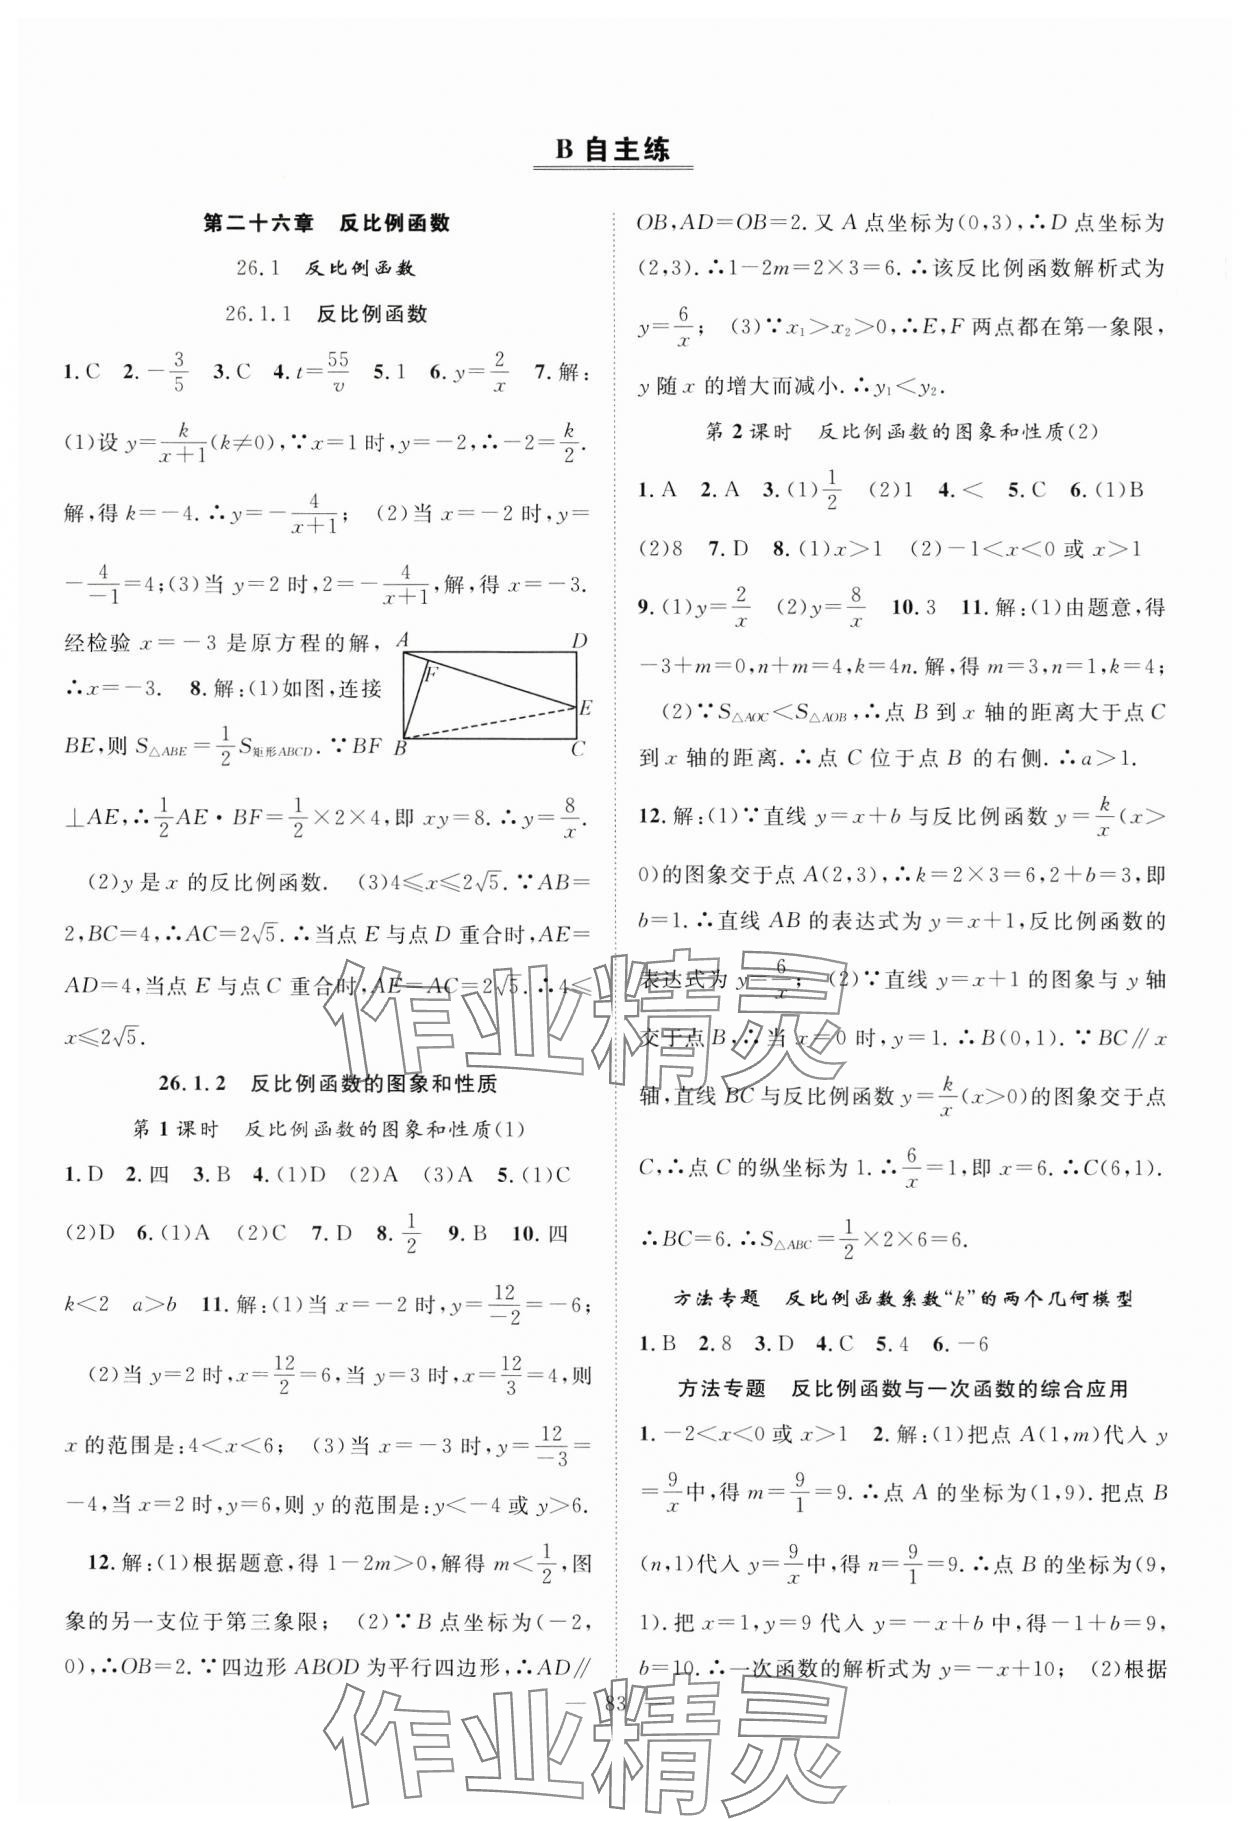 B 自主练
第二十六章　反比例函数
26.1　反比例函数
26.1.1　反比例函数
1.C　2.－3/5　3.C　4.t＝55/v　5.1　6.y＝2/x　7.解：
(1)设 y＝k/(x＋1)(k≠0),∵x＝1 时,y＝－2,∴－2＝k/2.
解,得 k＝－4.∴y＝－4/(x＋1)；　(2)当 x＝－2 时,y＝
－4/－1＝4;(3)当 y＝2 时,2＝－4/(x＋1),解,得 x＝－3.
经检验 x＝－3 是原方程的解,
∴x＝－3.　8.解:(1)如图,连接
BE,则 S△ABE＝1/2S矩形ABCD.∵BF
A D F E B C
⊥AE,∴1/2AE·BF＝1/2×2×4,即 xy＝8.∴y＝8/x.
(2)y 是 x 的反比例函数.　(3)4≤x≤2√5.∵AB＝
2,BC＝4,∴AC＝2√5.∴当点 E 与点 D 重合时,AE＝
AD＝4,当点 E 与点 C 重合时,AE＝AC＝2√5.∴4≤
x≤2√5.
26.1.2　反比例函数的图象和性质
第 1 课时　反比例函数的图象和性质(1)
1.D　2.四　3.B　4.(1)D　(2)A　(3)A　5.(1)C
(2)D　6.(1)A　(2)C　7.D　8.1/2　9.B　10.四
k＜2　a＞b　11.解:(1)当 x＝－2 时,y＝12/－2＝－6；
(2)当 y＝2 时,x＝12/2＝6,当 y＝3 时,x＝12/3＝4,则
x 的范围是:4＜x＜6；　(3)当 x＝－3 时,y＝12/－3＝
－4,当 x＝2 时,y＝6,则 y 的范围是:y＜－4 或 y＞6.
12.解:(1)根据题意,得 1－2m＞0,解得 m＜1/2,图
象的另一支位于第三象限；　(2)∵B 点坐标为(－2,
0),∴OB＝2.∵四边形 ABOD 为平行四边形,∴AD∥
OB,AD＝OB＝2.又 A 点坐标为(0,3),∴D 点坐标为
(2,3).∴1－2m＝2×3＝6.∴该反比例函数解析式为
y＝6/x；　(3)∵x₁＞x₂＞0,∴E,F 两点都在第一象限,
y 随 x 的增大而减小.∴y₁＜y₂.
第 2 课时　反比例函数的图象和性质(2)
1.A　2.A　3.(1)1/2　(2)1　4.＜　5.C　6.(1)B
(2)8　7.D　8.(1)x＞1　(2)－1＜x＜0 或 x＞1
9.(1)y＝2/x　(2)y＝8/x　10.3　11.解:(1)由题意,得
－3＋m＝0,n＋m＝4,k＝4n.解,得 m＝3,n＝1,k＝4；
(2)∵S△AOC＜S△AOB,∴点 B 到 x 轴的距离大于点 C
到 x 轴的距离.∴点 C 位于点 B 的右侧.∴a＞1.
12.解:(1)∵直线 y＝x＋b 与反比例函数 y＝k/x(x＞
0)的图象交于点 A(2,3),∴k＝2×3＝6,2＋b＝3,即
b＝1.∴直线 AB 的表达式为 y＝x＋1,反比例函数的
表达式为 y＝6/x；　(2)∵直线 y＝x＋1 的图象与 y 轴
交于点 B,∴当 x＝0 时,y＝1.∴B(0,1).∵BC∥x
轴,直线 BC 与反比例函数 y＝k/x(x＞0)的图象交于点
C,∴点 C 的纵坐标为 1.∴6/x＝1,即 x＝6.∴C(6,1).
∴BC＝6.∴S△ABC＝1/2×2×6＝6.
方法专题　反比例函数系数“k”的两个几何模型
1.B　2.8　3.D　4.C　5.4　6.－6
方法专题　反比例函数与一次函数的综合应用
1.－2＜x＜0 或 x＞1　2.解:(1)把点 A(1,m)代入 y
＝9/x中,得 m＝9/1＝9.∴点 A 的坐标为(1,9).把点 B
(n,1)代入 y＝9/x中,得 n＝9/1＝9.∴点 B 的坐标为(9,
1).把 x＝1,y＝9 代入 y＝－x＋b 中,得－1＋b＝9,
b＝10.∴一次函数的解析式为 y＝－x＋10；　(2)根据
— 83 —
作业精灵
作业精灵